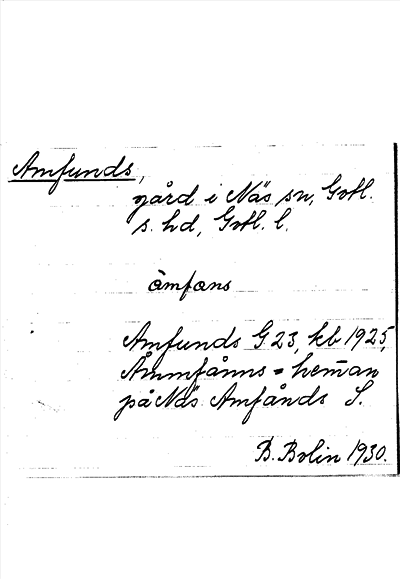 Amfunds,
gård i Näs sn, Gotl.
s. hd, Gotl. l.
àmfans
Amfunds G 23, kb 1925,
Åmmfånns = heman
på Näs Amfånds S.
B. Bolin 1930.